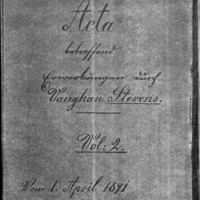 Acta
betreffend
Erwerbungen durch
Vaughan Stevens.
Vol: 2.
Vom 1. April 1891